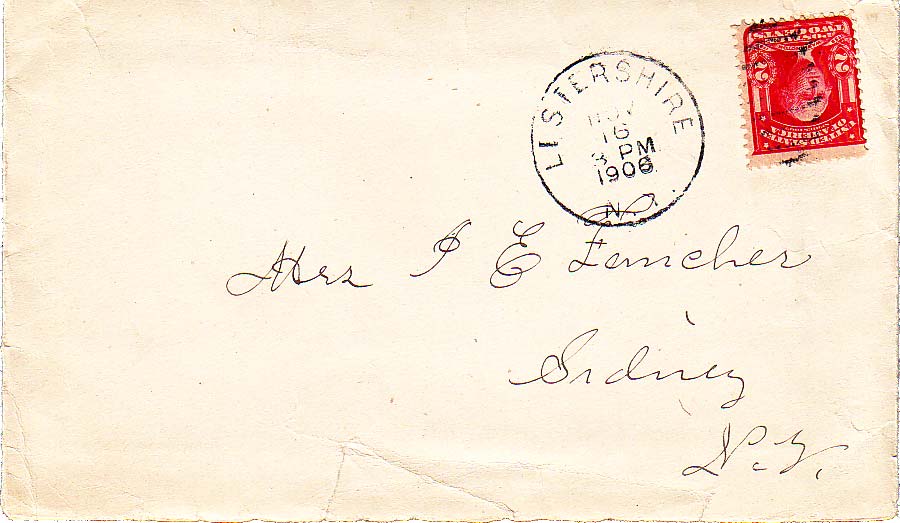 LESTERSHIRE
NOV
16
3 PM
1906
N.Y.
2 2
Mrs I E Fancher
Sidney
N.Y.